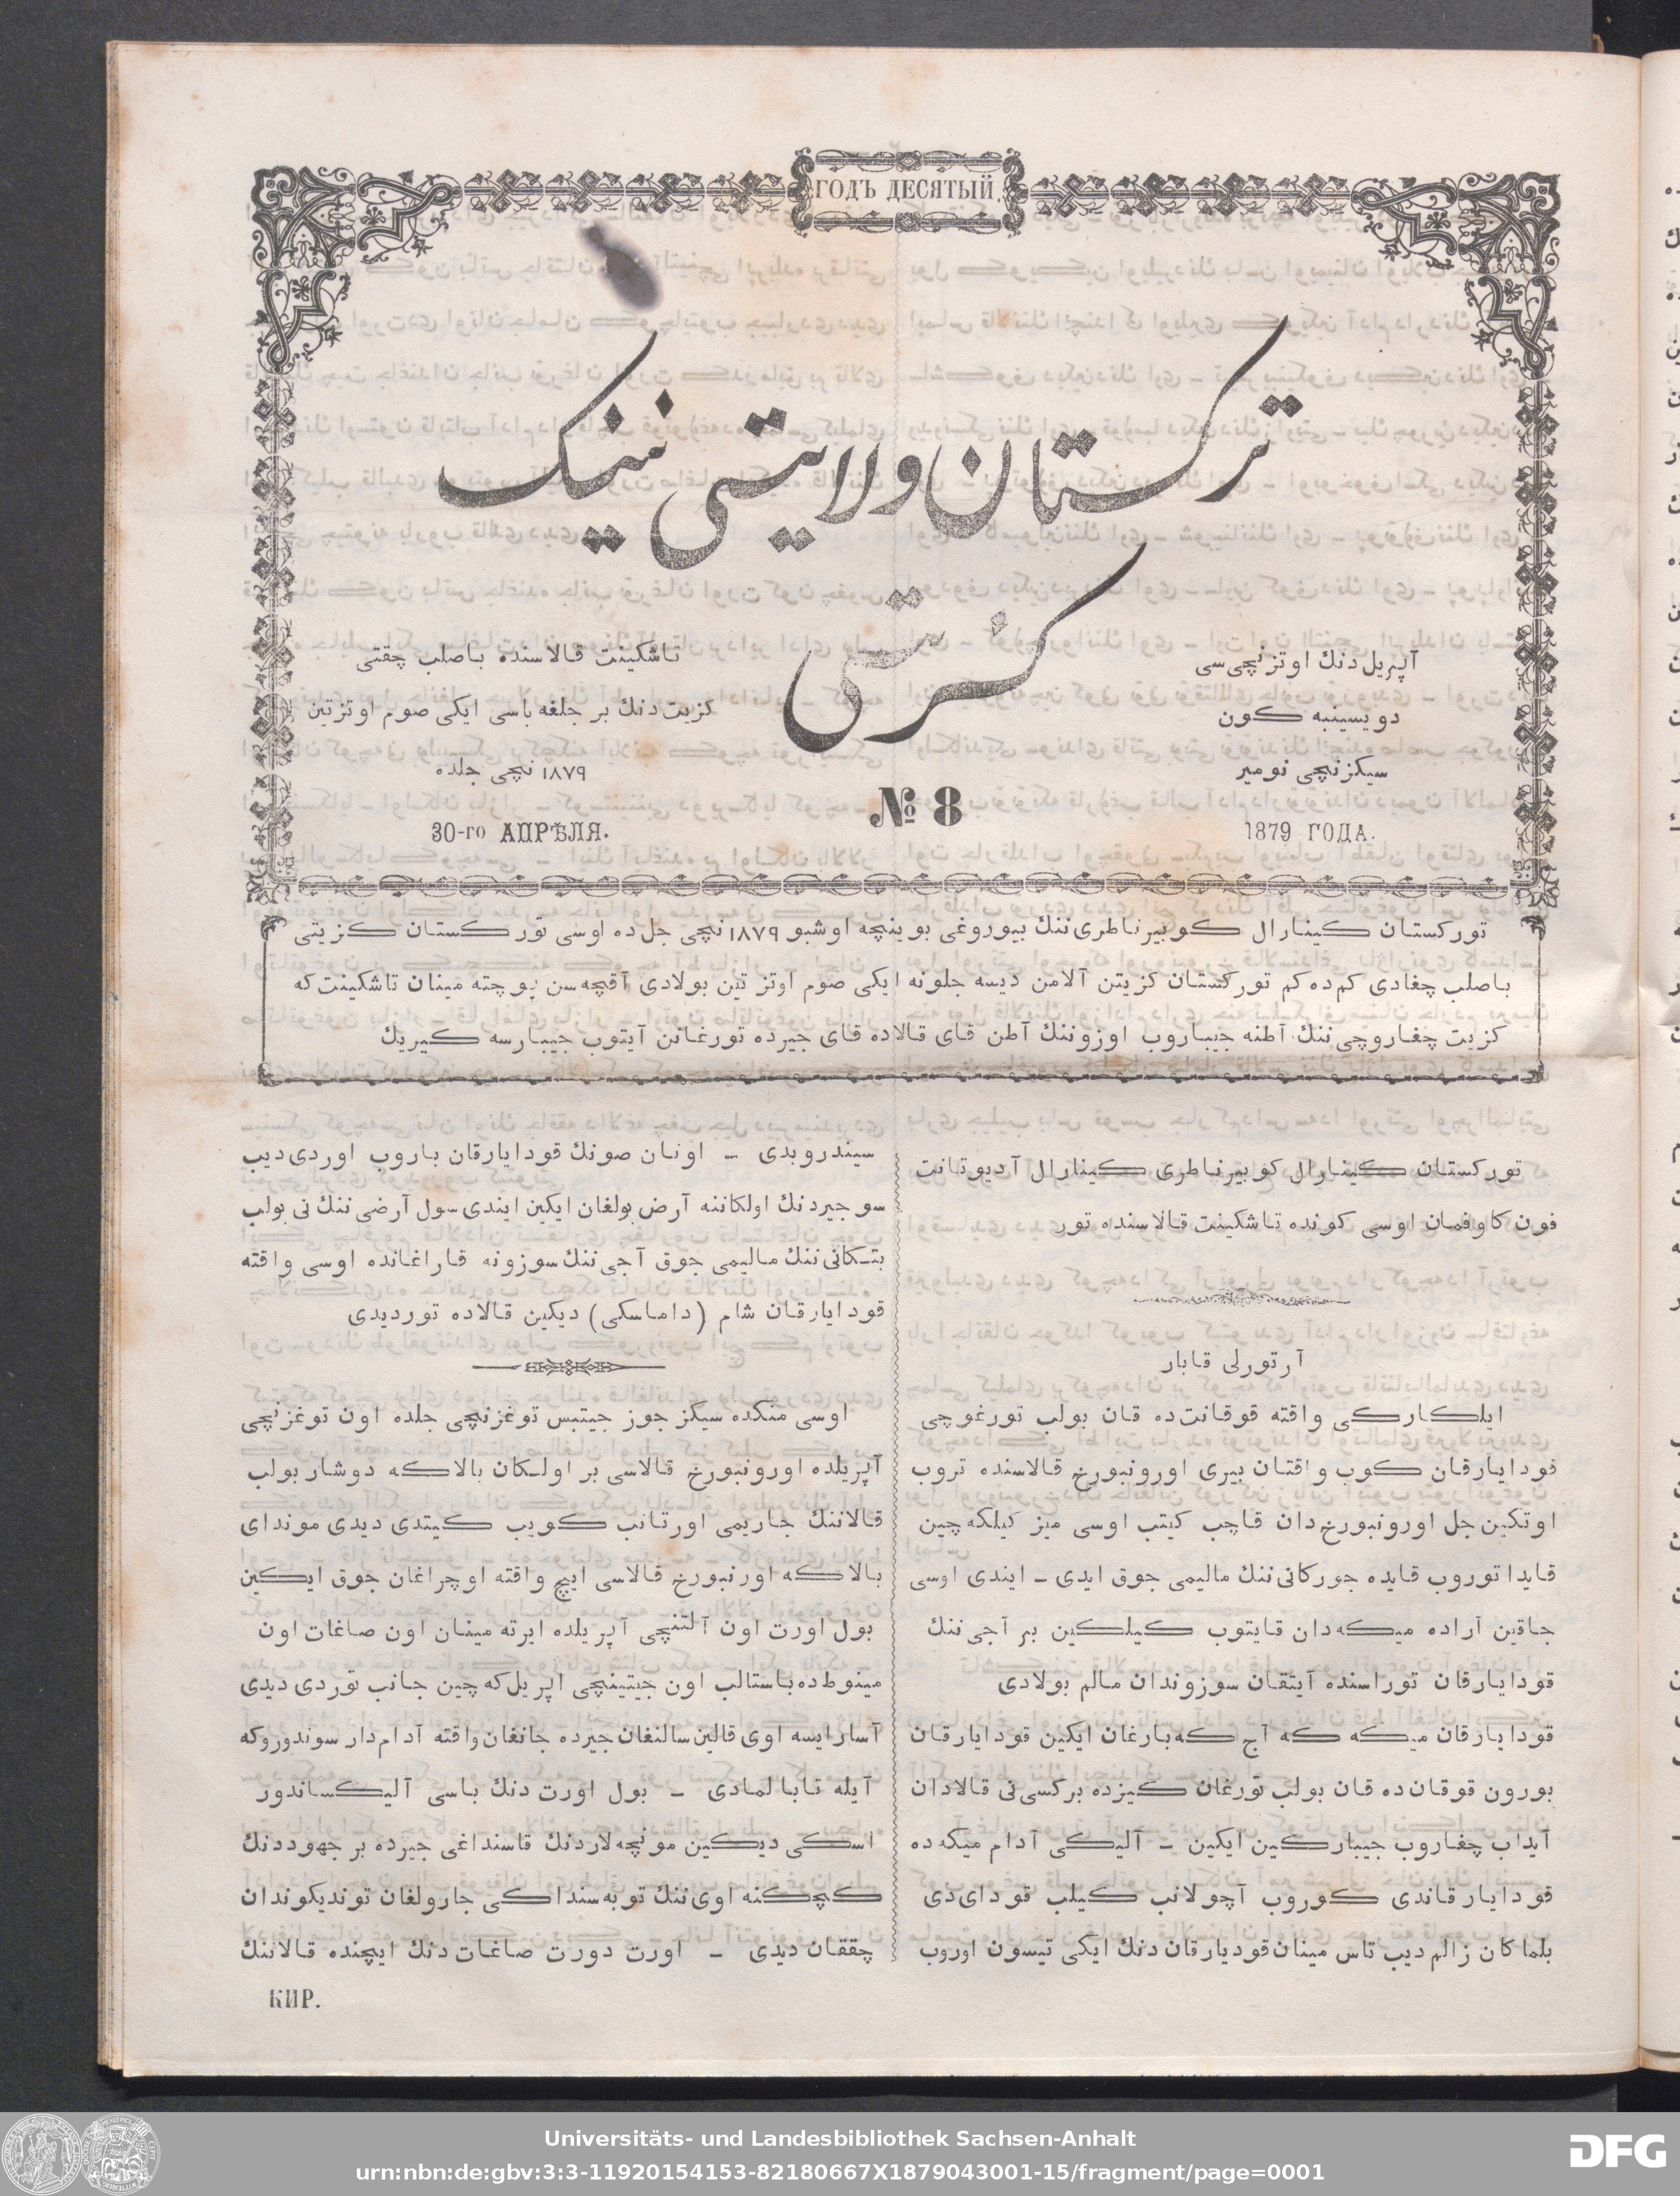 ГОДЪ ДЕСЯТЫЙ.
ترکستان ولایتی نینک
کزیتی
آپریل‌دنك اوتزنچی‌سی
دویسینبه كون
سیكزنچی نومیر
1879 ГОДА.
№ 8
تاشكینت قالاسنده باصلب چقتی
كزیت‌دنك بر جلغه باسی ایكی صوم اوتزتین
۱۸۷۹ نچی جلده
30-го АПРѢЛЯ.
توركستان كینارال كوبیرناطری‌ننك بیوروغی بوینچه اوشبو ۱۸۷۹ نچی جل‌ده اوسی توركستان كزیتی
باصلب چغادی كم‌ده كم توركستان كزیتن آلامن دیسه جلونه ایكی صوم اوتز تین بولادی آقچه‌سن پوچته مینان تاشكینت‌كه
كزیت چغاروچی‌ننك آطنه جیباروب اوزوننك آطن قای قالاده قای جیرده تورغانن آیتوب جیبارسه كیریك
توركستان كینارال كوبیرناطری كینارال آدیوتانت
فون كاوفمان اوسی كونده تاشكینت قالاسنده تور
آرتورلی قابار
ایلكاركی واقته قوقانت‌ده قان بولب تورغوچی
قودایارقان كوب واقتان بیری اورونبورخ قالاسنده تروب
اوتكین جل اورونبورخ‌دان قاچب كیتب اوسی میز كیلكه‌چین
قایدا توروب قایده جوركانی‌ننك مالیمی جوق ایدی ـ ایندی اوسی
جاقین آراده میكه‌دان قایتوب كیلكین بر آجی‌ننك
قودایارقان توراسنده آیتقان سوزوندان مالم بولادی
قودایارقان میكه كه آج كه‌بارغان ایكین قودایارقان
بورون قوقان‌ده قان بولب تورغان كیزده بركسی‌نی قالادان
آیداب چغاروب جیباركین ایكین ـ آلیكی آدام میكه‌ده
قودایارقاندی كوروب آچولانب كیلب قودای‌دی
بلماكان زالم دیب تاس مینان قودیارقان دنك ایكی تیسون اوروب
سیندروبدی ـ اونان صونك قودایارقان باروب اوردی‌دیب
سوجیردنك اولكاننه آرض بولغان ایكین ایندی سول آرضی‌ننك نی بولب
بتكانی‌ننك مالیمی جوق آجی‌ننك سوزونه قاراغانده اوسی واقته
قودایارقان شام (داماسكی) دیكین قالاده توردیدی
اوسی منكده سیكز جوز جیتمس توغزنچی جلده اون توغزنچی
آپریلده اورونبورخ قالاسی بر اولكان بالاكه دوشار بولب
قالاننك جاریمی اورتانب كویب كیتدی دیدی موندای
بالاكه اورنبورخ قالاسی ایچ واقته اوچراغان جوق ایكین
بول اورت اون آلتنچی آپریلده ایرته مینان اون صاغات اون
مینوط‌ده باستالب اون جیتینچی اپریل‌كه چین جانب توردی دیدی
آسارایسه اوی قالین سالنغان جیرده جانغان واقته آدام‌دار سوندوروكه
آیله تابا لمادی ـ بول اورت دنك باسی آلیكساندور
اسكی دیكین مونچه‌لاردنك قاسنداغی جیرده بر جهوددنك
كچكنه اوی‌ننك توبه‌سنداكی جارولغان توندیكوندان
چققان دیدی ـ اورت دورت صاغات دنك ایچنده قالاننك
КИР.
Universitäts- und Landesbibliothek Sachsen-Anhalt
urn:nbn:de:gbv:3:3-11920154153-82180667X1879043001-15/fragment/page=0001
DFG